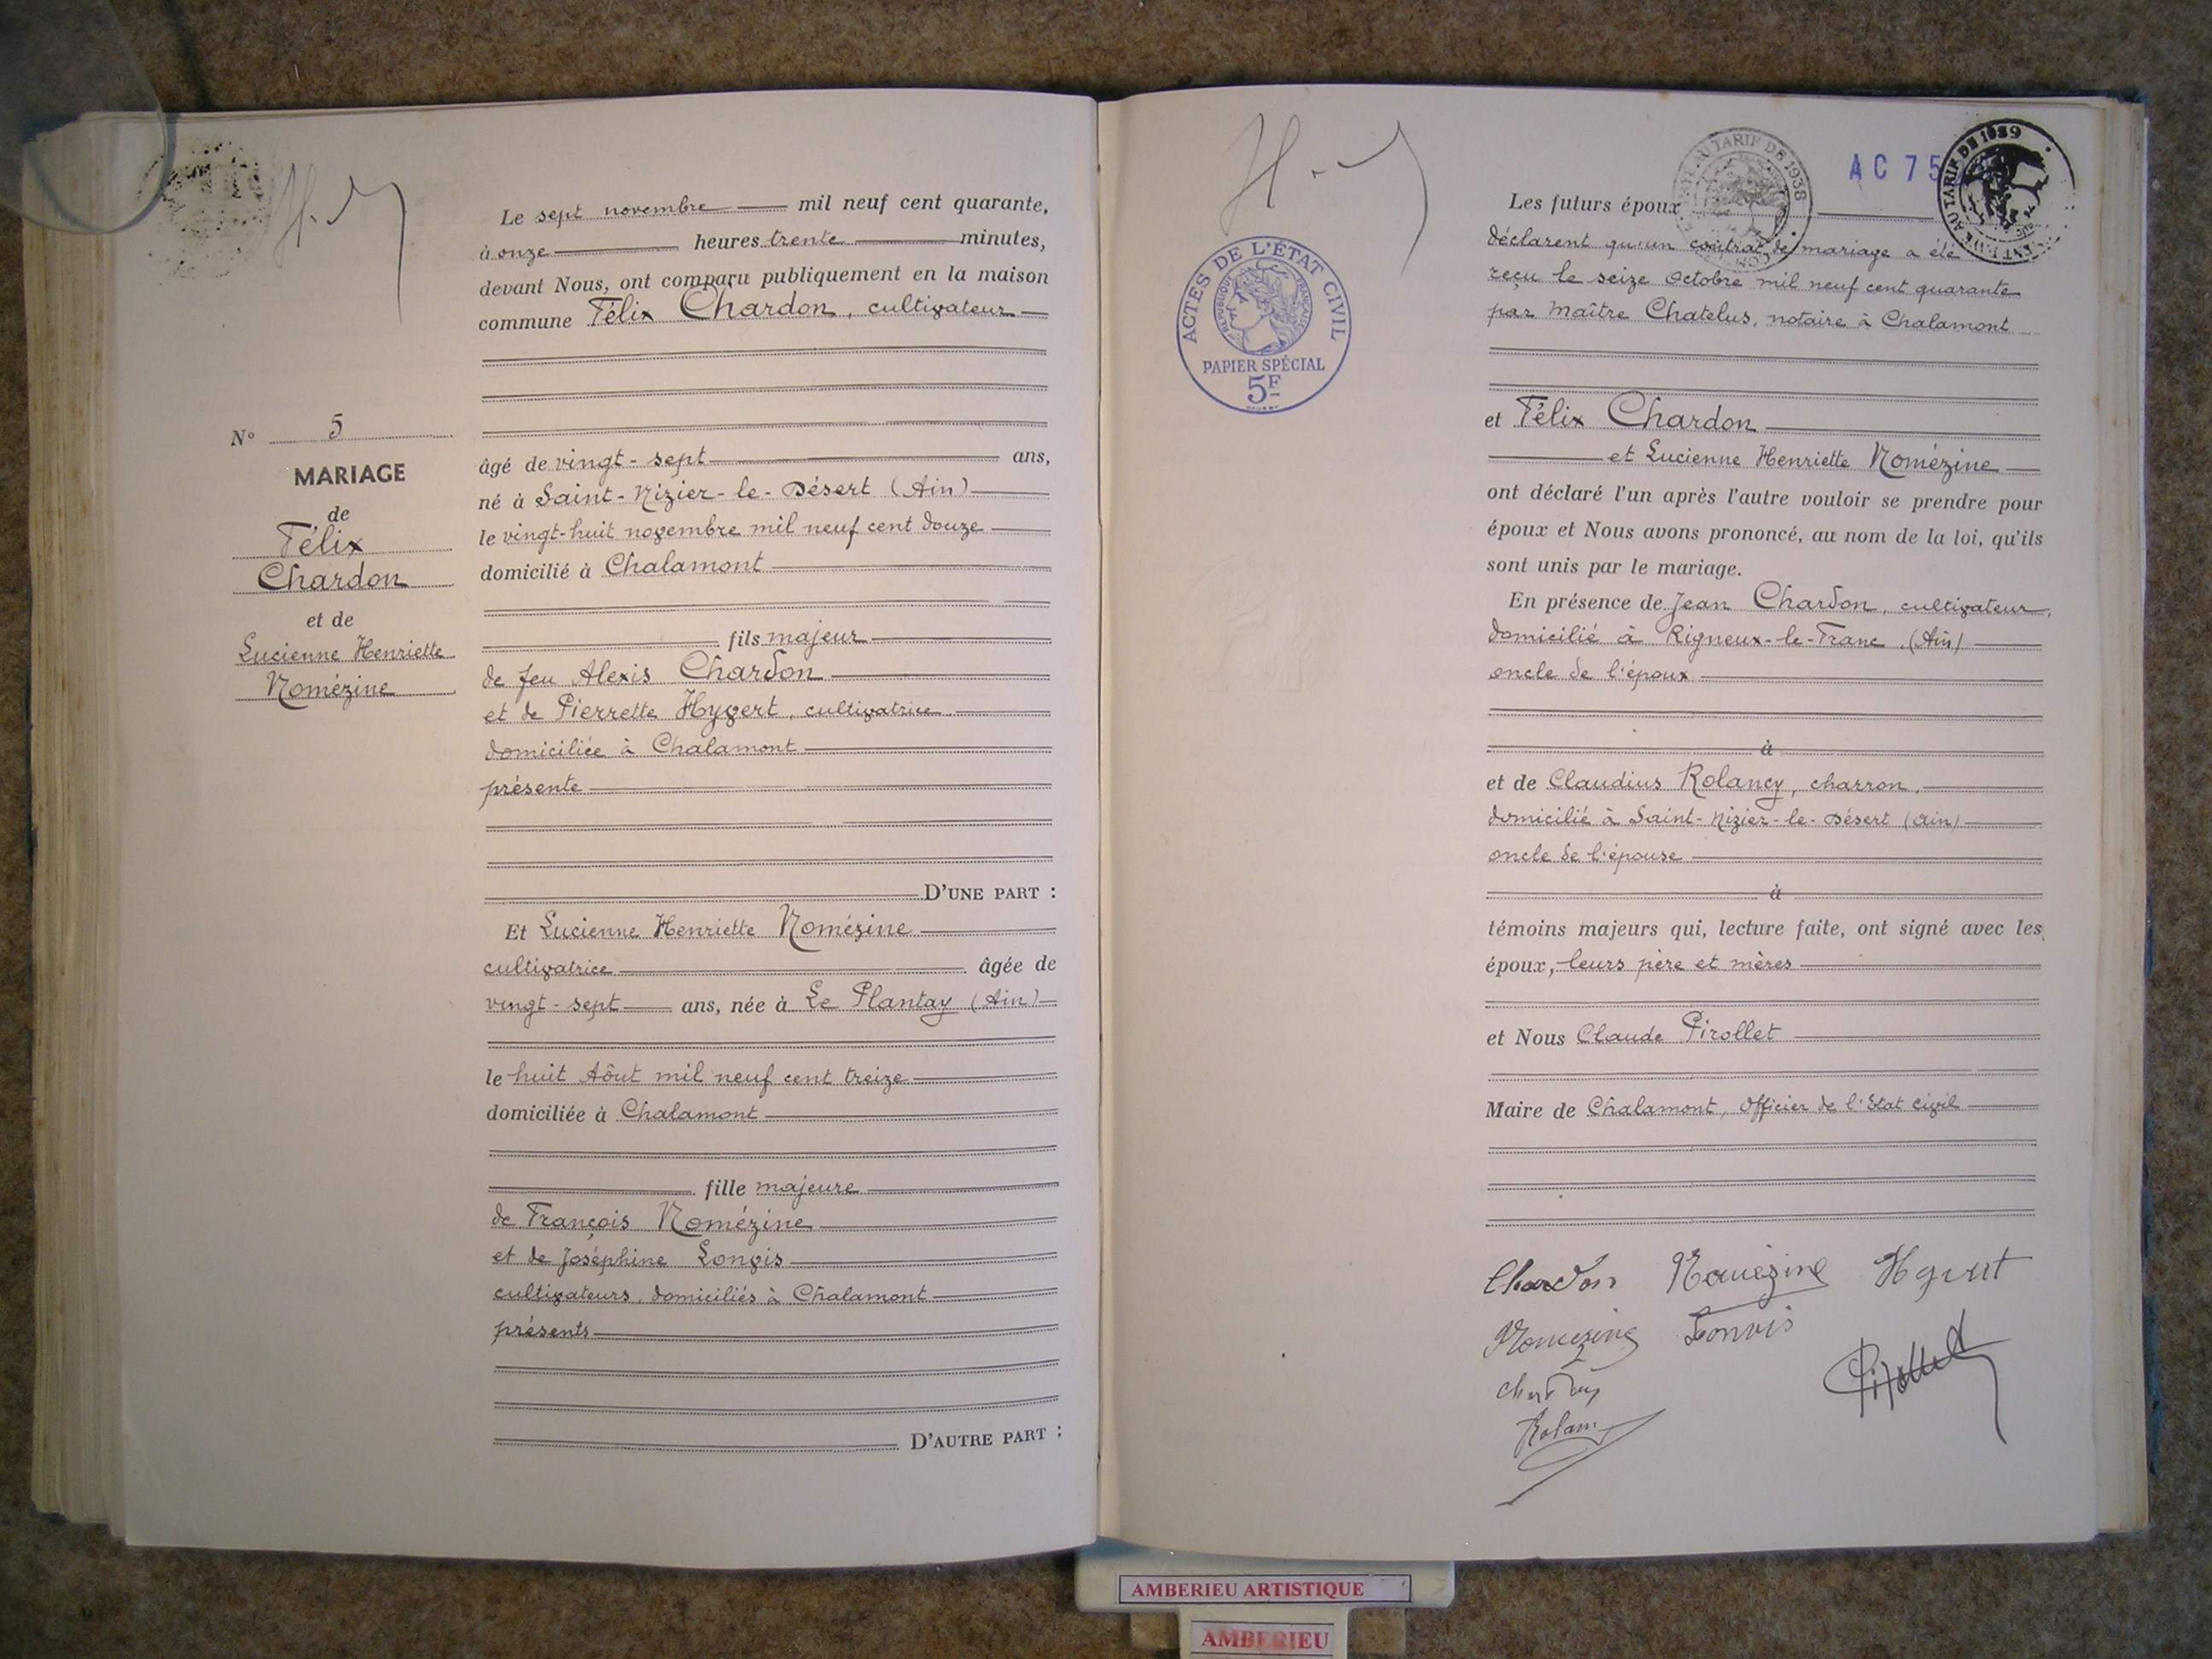 Le sept novembre mil neuf cent quarante,
à onze heures trente minutes,
devant Nous, ont comparu publiquement en la maison
commune Félix Chardon, cultivateur
N° 5
MARIAGE
de
Félix
Chardon
et de
Lucienne Henriette
Nomézine
âgé de vingt-sept ans,
né à Saint-Nizier-le-Désert (Ain)
le vingt-huit novembre mil neuf cent douze
domicilié à Chalamont
fils majeur
de feu Alexis Chardon
et de Pierrette Hyvert, cultivatrice
domiciliée à Chalamont
présente
D'UNE PART :
Et Lucienne Henriette Nomézine
cultivatrice âgée de
vingt-sept ans, née à Le Plantay (Ain)
le huit Aôut mil neuf cent treize
domiciliée à Chalamont
fille majeure
de François Nomézine
et de Joséphine Lonvis
cultivateurs, domiciliés à Chalamont
présents
D'AUTRE PART :
ACTES DE L'ÉTAT CIVIL
RÉPUBLIQUE FRANÇAISE
PAPIER SPÉCIAL
5F
AU TARIF DE 1938
AC 75
AU TARIF DE 1939
Les futurs époux
déclarent qu'un contrat de mariage a été
reçu le seize Octobre mil neuf cent quarante
par Maître Chatelus, notaire à Chalamont
et Félix Chardon
et Lucienne Henriette Nomézine
ont déclaré l'un après l'autre vouloir se prendre pour
époux et Nous avons prononcé, au nom de la loi, qu'ils
sont unis par le mariage.
En présence de Jean Chardon, cultivateur,
domicilié à Rigneux-le-Franc, (Ain)
oncle de l'époux
à
et de Claudius Rolancy, charron,
domicilié à Saint-Nizier-le-Désert (Ain)
oncle de l'épouse
à
témoins majeurs qui, lecture faite, ont signé avec les
époux, leurs père et mères
et Nous Claude Pirollet
Maire de Chalamont, Officier de l'Etat civil
Chardon Nomézine Hyvert
Nomezine Lonvis
Pirollet
AMBERIEU ARTISTIQUE
AMBERIEU